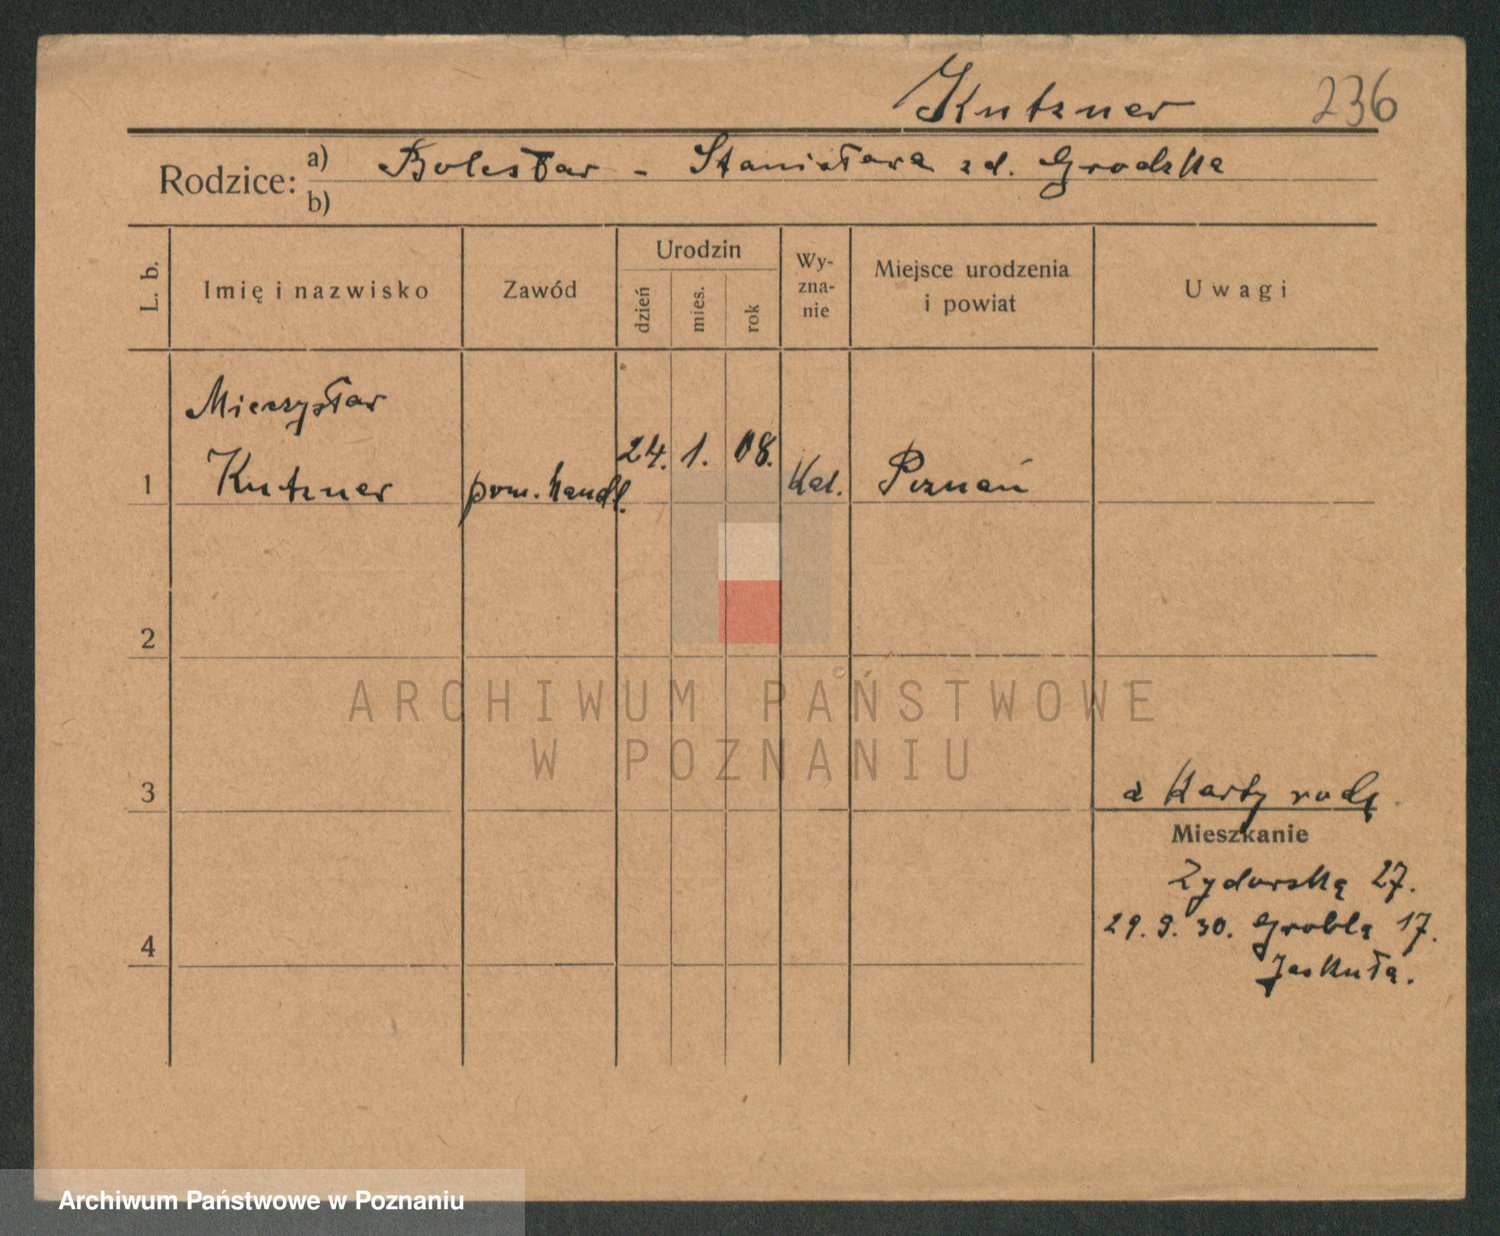 Kutzner 236
Rodzice: a) Bolesław - Stanisława zd. Grodzka
b)
L. b. Imię i nazwisko Zawód Urodzin dzień mies. rok Wyznanie Miejsce urodzenia i powiat Uwagi
Mieczysław
1 Kutzner pom. handl. 24. 1. 08. Kat. Poznań
2
ARCHIWUM PAŃSTWOWE
W POZNANIU
3 z Karty
Mieszkanie
Żydowska 27.
29. 9. 30. Grobla 17.
4 Jaskuła.
Archiwum Państwowe w Poznaniu